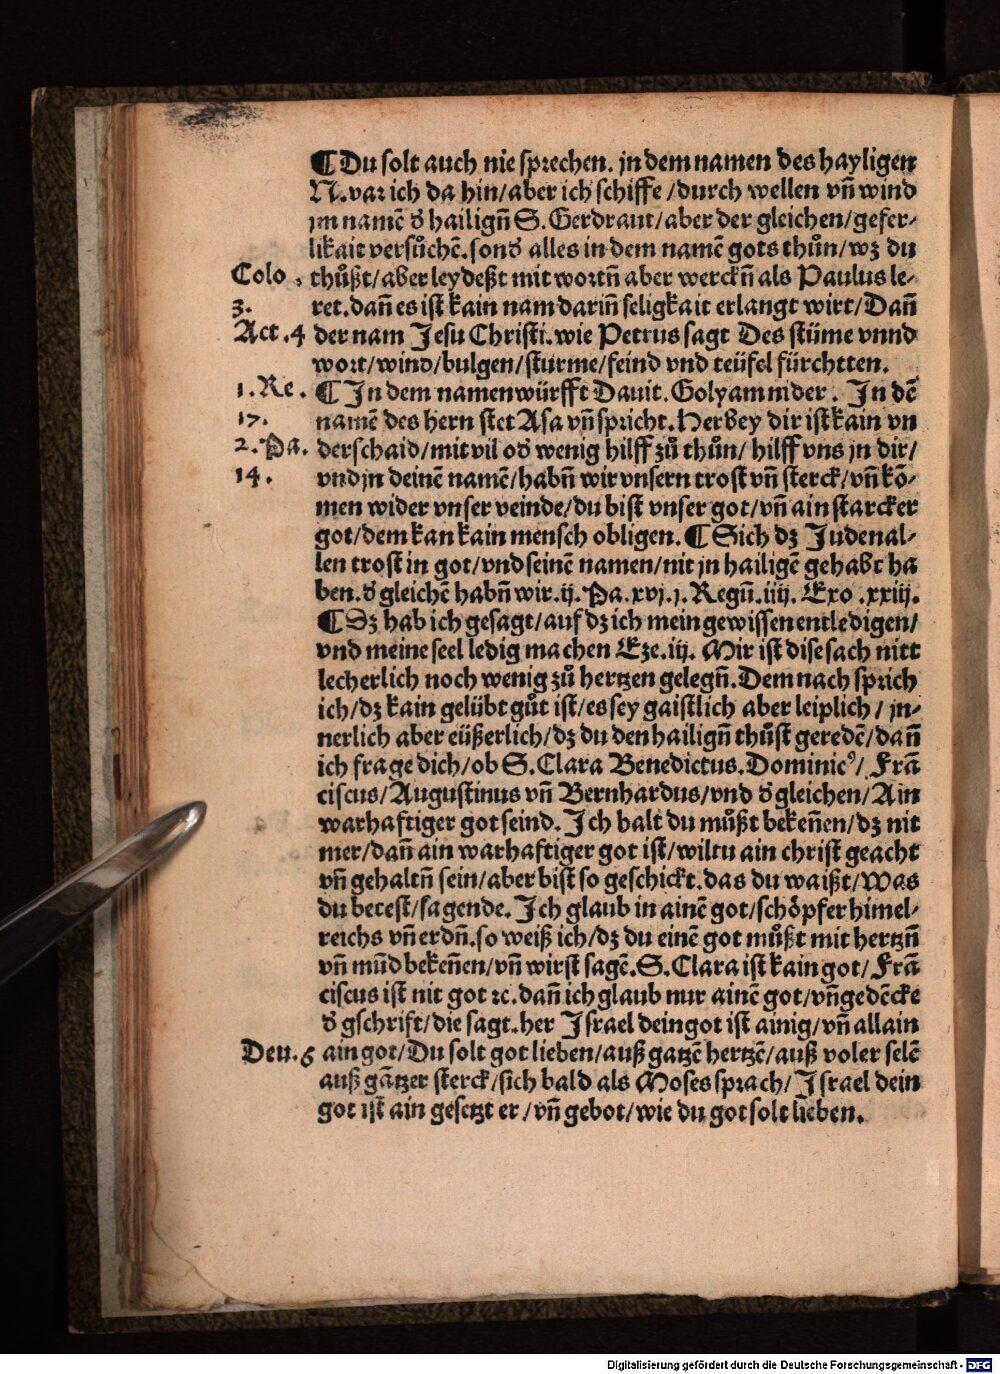 ¶ Du solt auch nie sprechen. jn dem namen des hayligen
N. var ich da hin/ aber ich schiffe /durch wellen vn̄ wind
jm namē d̕ hailign̄ S. Gerdraut/ aber der gleichen/ gefer⸗
likait versůchē. sond̕ alles in dem namē gots thůn/ wz du
Colo . thůßt/ aber leydeßt mit wortn̄ aber werckn̄ als Paulus le⸗
3. ret. dan̄ es ist kain nam darin̄ seligkait erlangt wirt/ Dan̄
Act. 4 der nam Jesu Christi. wie Petrus sagt Des stüme vnnd
wort/ wind/ bulgen/ sturme/ feind vnd teüfel fürchtten.
1. Re . ¶ In dem namen würfft Dauit. Golyam nider . In dē
17. namē des hern stet Asa vn̄ spricht. Her bey dir ist kain vn
2. Pa. derschaid/ mit vil od̕ wenig hilff zů thůn/ hilff vns jn dir/
14. vnd jn deinē namē/ habn̄ wir vnsern trost vn̄ sterck/ vn̄ kō⸗
men wider vnser veinde/ du bist vnser got/ vn̄ ain starcker
got/ dem kan kain mensch obligen. ¶ Sich dz Juden al⸗
len trost in got/ vnd seinē namen/ nit jn hailigē gehabt ha
ben. d̕ gleichē habn̄ wir. ij. Pa. xvj. j. Regū. iiij. Exo .xxiij.
¶ Dz hab ich gesagt/ auf dz ich mein gewissen entledigen/
vnd meine seel ledig machen Eze. iij. Mir ist dise sach nitt
lecherlich noch wenig zů hertzen gelegn̄. Dem nach sprich
ich/ dz kain gelübt gůt ist/ es sey gaistlich aber leiplich / jn⸗
nerlich aber eüßerlich/ dz du den hailign̄ thůst geredē/ dan̄
ich frage dich/ ob S. Clara Benedictus. Dominicꝰ/ Frā
ciscus/ Augustinus vn̄ Bernhardus/ vnd d̕ gleichen/ Ain
warhaftiger got seind. Ich halt du můßt beken̄en/ dz nit
mer/ dan̄ ain warhaftiger got ist/ wiltu ain christ geacht
vn̄ gehaltn̄ sein/ aber bist so geschickt. das du waißt/ Was
du betest/ sagende. Ich glaub in ainē got/ schöpfer himel⸗
reichs vn̄ erdn̄. so weiß ich/ dz du einē got můßt mit hertzn̄
vn̄ mūd beken̄en/ vn̄ wirst sagē. S. Clara ist kain got/ Frā
ciscus ist nit got ꝛc. dan̄ ich glaub nur ainē got/ vn̄ gedēcke
d̕ gschrift/ die sagt. her Israel dein got ist ainig/ vn̄ allain
Deu. 6 ain got/ Du solt got lieben/ auß gātzē hertzē/ auß voler selē
auß gātzer sterck/ sich bald als Moses sprach/ Israel dein
got ist ain gesetzt er /vn̄ gebot/ wie du got solt lieben.
Digitalisierung gefördert durch die Deutsche Forschungsgemeinschaft - DFG